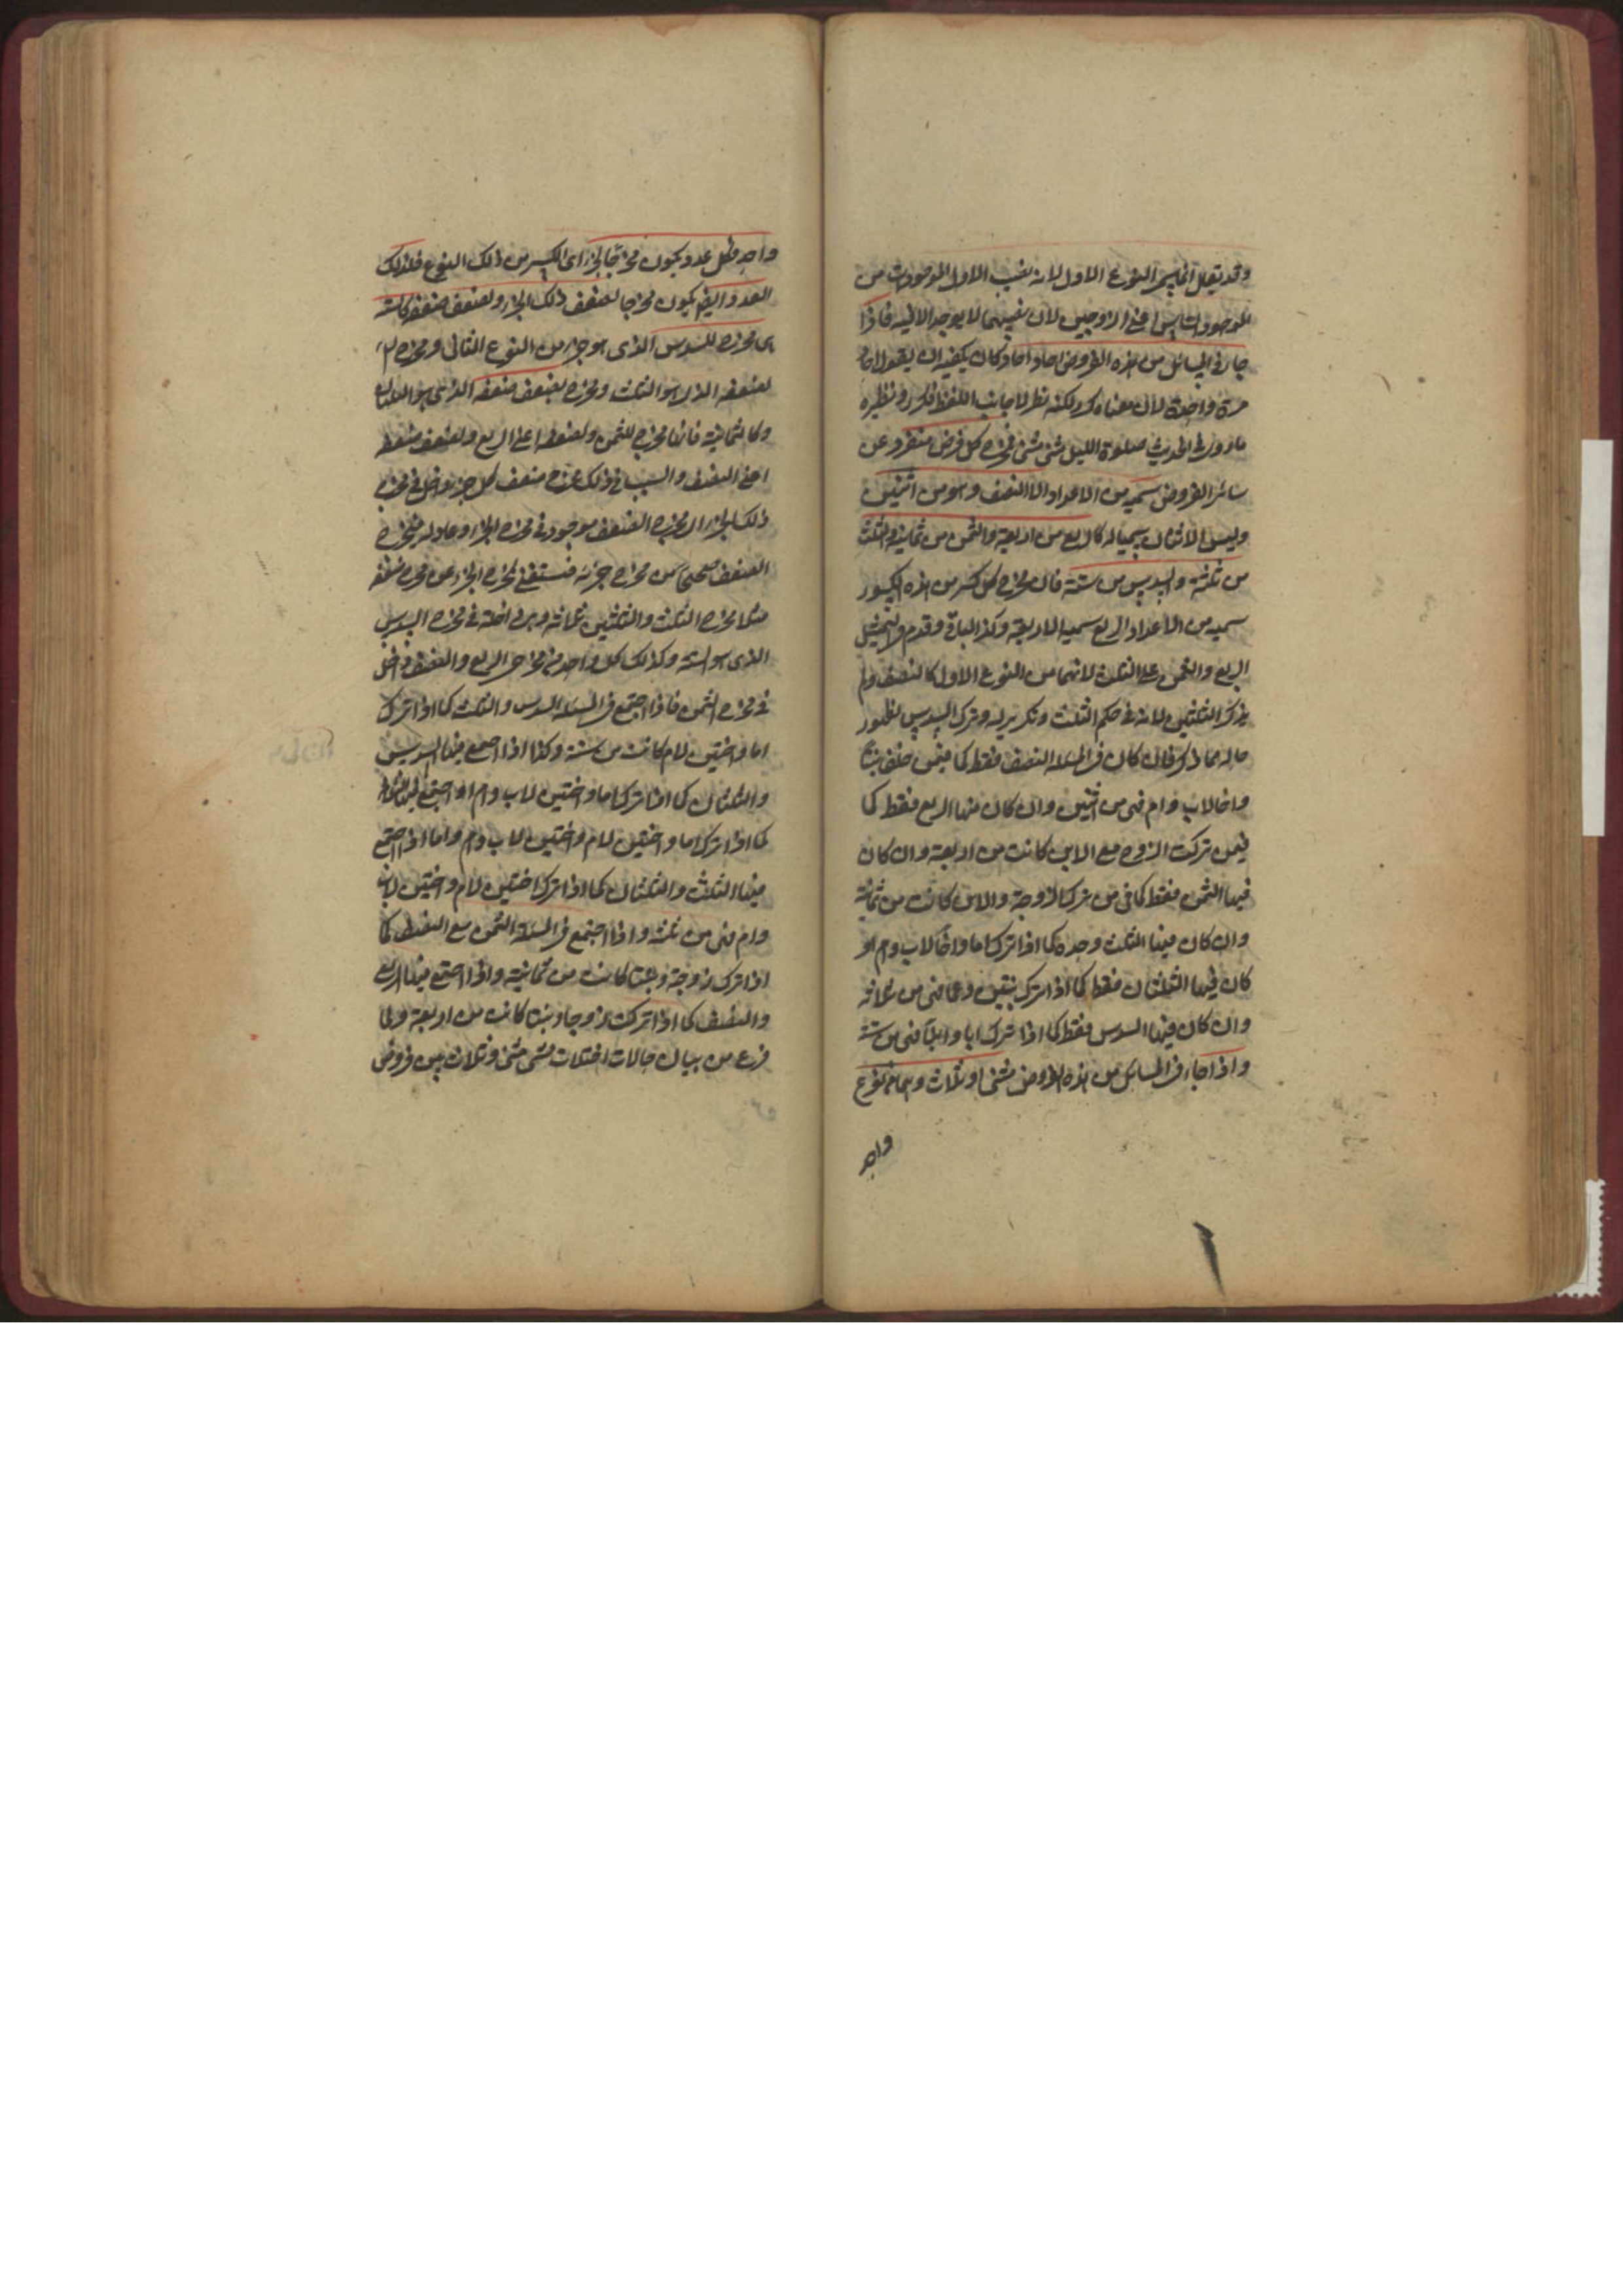 وقد يقال انما سمى النوع الاول لانه نصيب الاول الموجودات من
الموجودات الناس اعنى الزوجين لان نصيبهما لا يوجد الا فيه فاذا
جاء فى المسائل من هذه الفروض احاد احاد وكان يكفيه ان يقول احاد
مرة واحدة لان معناه مكرر لكنه نظر الى جانب اللفظ فكرر ونظيره
ما ورد فى الحديث صلوة الليل مثنى مثنى فمخرج كل فرض منفرد عن
سائر الفروض سميه من الاعداد الا النصف وهو من اثنين
وليس الاثنان سميا له كالربع من اربعة والثمن من ثمانية والثلث
من ثلثة والسدس من ستة فان مخرج كل كسر من هذه الكسور
سميه من الاعداد الربع سميه الاربعة وكذا البواقى وقدم فى التمثيل
الربع والثمن على الثلث لانهما من النوع الاول كالنصف ولم
يذكر الثلثين لانه فى حكم الثلث وتكرير له وترك السدس لظهور
حاله مما ذكر فان كان فى المسئلة النصف فقط كما فيمن خلف بنتا
واخا لاب وام فهى من اثنين وان كان فيها الربع فقط كما
فيمن تركت الزوج مع الابن كانت من اربعة وان كان
فيها الثمن فقط كما فى من ترك الزوجة والابن كانت من ثمانية
وان كان فيها الثلث وحده كما اذا ترك اما واخا لاب وام او
كان فيها الثلثان فقط كما اذا ترك بنتين وعما فهى من ثلاثة
وان كان فيها السدس فقط كما اذا ترك ابا وابنا فهى من ستة
واذا جاء فى المسائل من هذه الفروض مثنى او ثلاث وهما من نوع
واحد
واحد فكل عدد يكون مخرجا لجزء اى لكسر من ذلك النوع فلذلك
العدد ايضا يكون مخرجا لضعف ذلك الجزء ولضعف ضعفه كالستة
هى مخرج للسدس الذى هو جزء من النوع الثانى ومخرج
لضعفه الذى هو الثلث ومخرج لضعف ضعفه الذى هو الثلثان
وكالثمانية فانها مخرج للثمن ولضعفه اعنى الربع ولضعف ضعفه
اعنى النصف والسبب فى ذلك ان مخرج ضعف كل جزء داخل فى مخرج
ذلك الجزء لان مخرج الضعف موجود فى مخرج الجزء وعاد له فمخرج
الضعف صحيحا من مخرج جزئه فنستغنى بمخرج الجزء عن مخرج ضعفه
مثلا مخرج الثلث والثلثين ثلاثة وهى داخلة فى مخرج السدس
الذى هو الستة وكذلك كل واحد من مخرج الربع والنصف داخل
فى مخرج الثمن فاذا اجتمع فى المسئلة السدس والثلث كما اذا ترك
اما واختين لام كانت من ستة وكذا اذا اجتمع فيها السدس
والثلثان كما اذا ترك اما واختين لاب وام او اجتمع فيها الثلاثة
كما اذا ترك اما واختين لام واختين لاب وام واما اذا اجتمع
فيها الثلث والثلثان كما اذا ترك اختين لام واختين لاب
وام فهى من ثلثة واذا اجتمع فى المسئلة الثمن مع النصف كما
اذا ترك زوجة وبنتا كانت من ثمانية واذا اجتمع فيها الربع
والنصف كما اذا تركت زوجا وبنتا كانت من اربعة ولما
فرغ من بيان حالات اختلاط مثنى مثنى وثلاث بين فروض